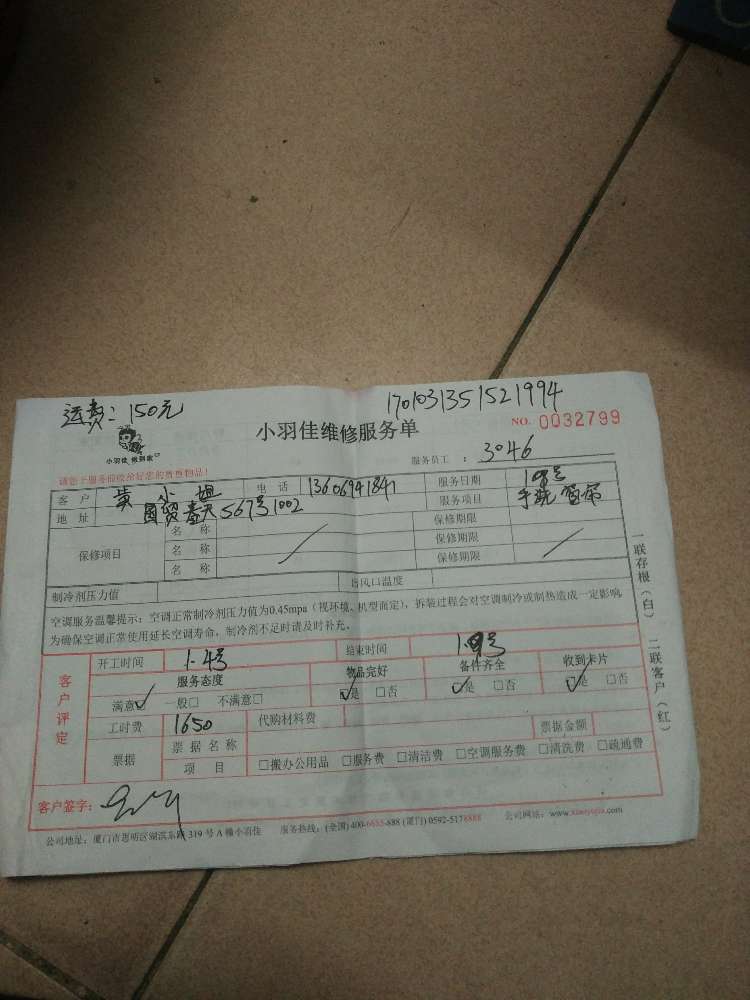 运费：150元
17010313515​21994
小羽佳维修服务单
NO. 0032799
小羽佳 做到家
服务员工 ： 3046
请您于服务前收拾好您的贵重物品！
客 户 黄小姐 电 话 13606941841 服务日期
地 址 国贸春天567号1002 服务项目 手洗窗帘
保修项目 名 称 保修期限
名 称 保修期限
名 称 保修期限
制冷剂压力值 出风口温度
空调服务温馨提示：空调正常制冷剂压力值为0.45mpa（视环境、机型而定），拆装过程会对空调制冷或制热造成一定影响，
为确保空调正常使用延长空调寿命，制冷剂不足时请及时补充。
客户评定
开工时间 1.4号 结束时间 1.9号
服务态度 物品完好 备件齐全 收到卡片
满意☑ 一般□ 不满意□ ☑是 □否 ☑是 □否 ☑是 □否
工时费 1650 代购材料费
票据 票据名称 票据金额
项 目 □搬办公用品 □服务费 □清洁费 □空调服务费 □清洗费 □疏通费
客户签字：
公司地址：厦门市思明区湖滨东路319号A幢小羽佳 服务热线：(全国) 400-6655-888 (厦门) 0592-5178888 公司网站：www.xiaoyujia.com
一联存根（白） 二联客户（红）